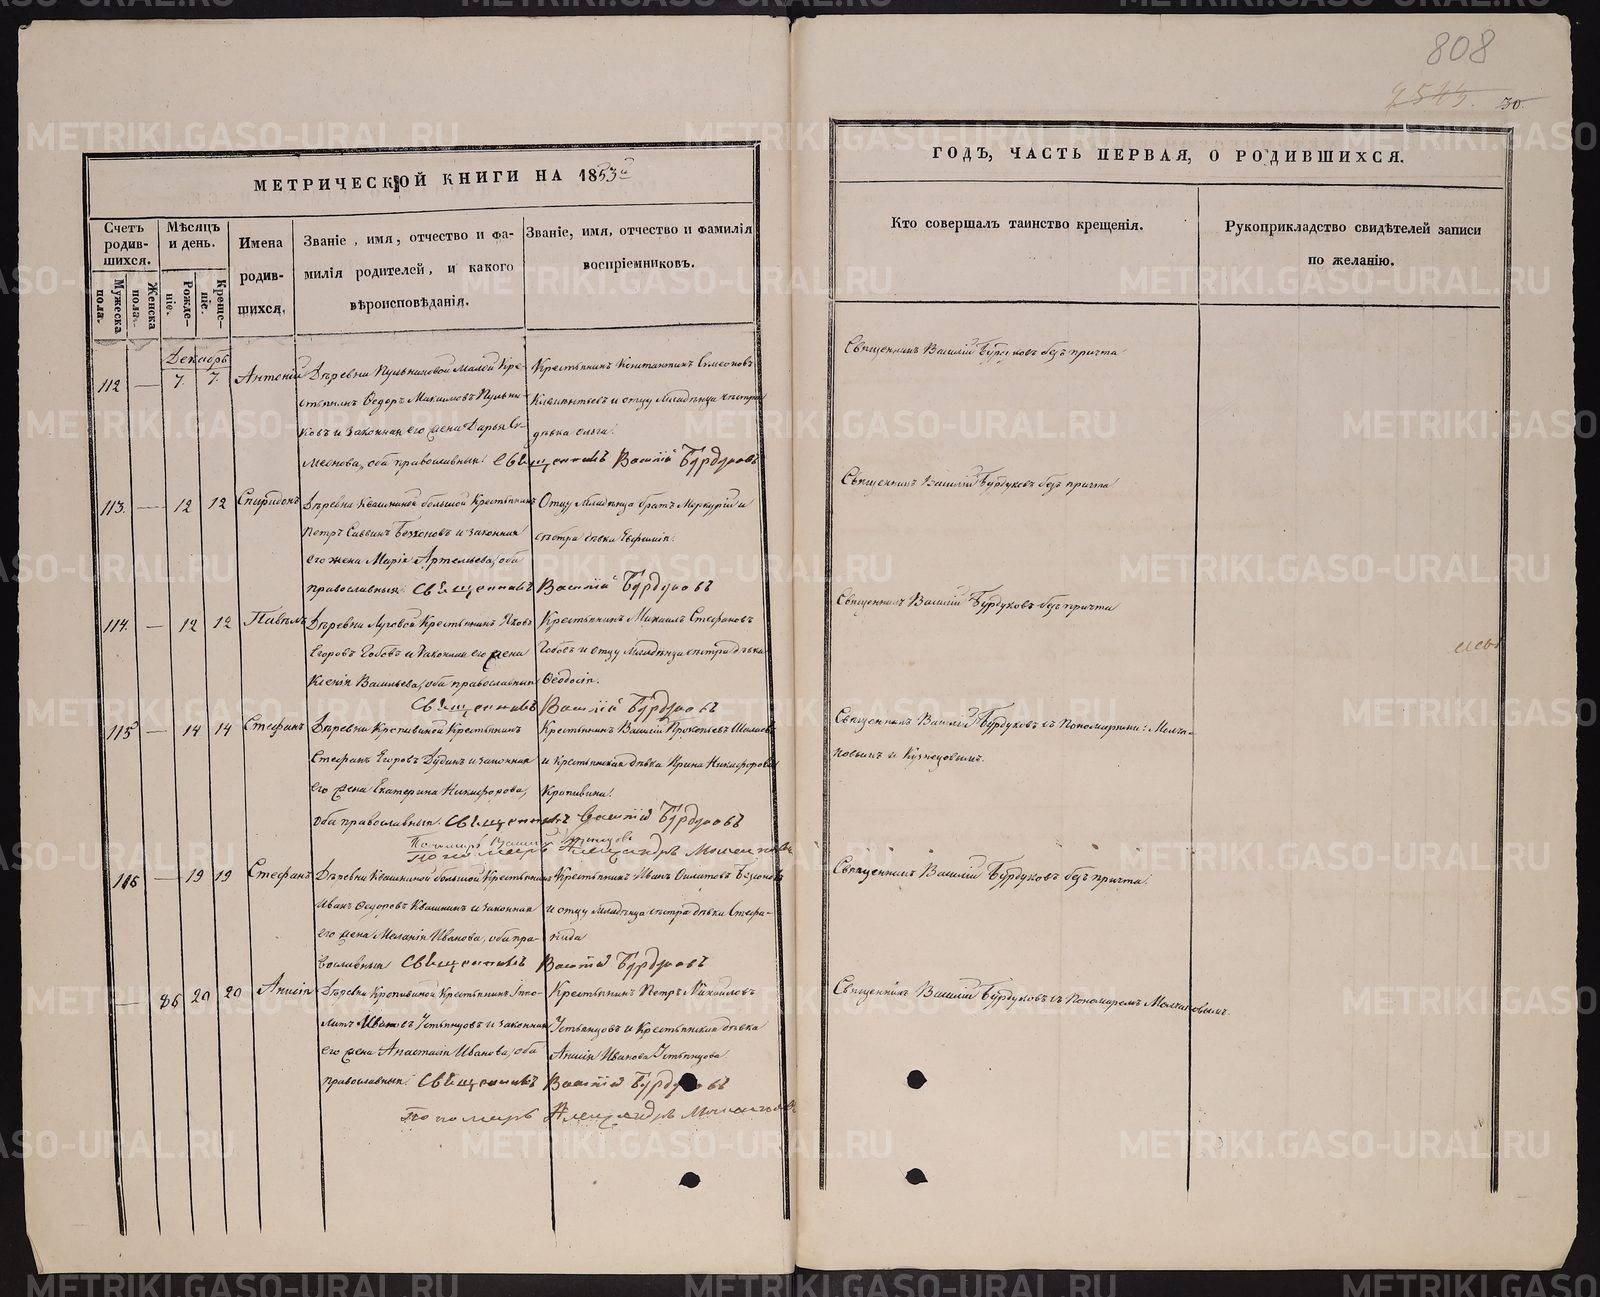 808
30.
МЕТРИЧЕСКОЙ КНИГИ НА 1853й
ГОДЪ, ЧАСТЬ ПЕРВАЯ, О РОДИВШИХСЯ.
Счетъ родив-шихся.
Мужеска пола.
Женска пола.
Мѣсяцъ и день.
Рожде-ніе.
Креще-ніе.
Имена родив-шихся.
Званіе, имя, отчество и фа-
милія родителей, и какого
вѣроисповѣданія.
Званіе, имя, отчество и фамилія
воспріемниковъ.
Кто совершалъ таинство крещенія.
Рукоприкладство свидѣтелей записи
по желанію.
Декабрь
112 — 7. 7. Антоній
Деревни Пульниковой Малой Кре-
стьянинъ Ѳедоръ Максимовъ Пульни-
ковъ и законная его жена Дарья Си-
меонова, оба православныя.
Крестьянинъ Константинъ Симеоновъ
и отцу младенца сестра
дѣвка Ольга.
Священникъ Василій Бурдуковъ
Священникъ Василій Бурдуковъ безъ причта
113. — 12 12 Спиридонъ
Деревни Квашниной большой Крестьянинъ
Петръ Саввинъ и законная
его жена Марія Артемьева, оба
православныя.
Отцу младенца братъ Меркурій и
сестра дѣвка Евфимія.
Священникъ Василій Бурдуковъ
Священникъ Василій Бурдуковъ безъ причта
114. — 12 12 Павелъ
Деревни Луговой Крестьянинъ Яковъ
Егоровъ и законная его жена
Ксенія Васильева, оба православныя
Крестьянинъ Михаилъ Стефановъ
и отцу младенца сестра дѣвка
Ѳеодосія.
Священникъ Василій Бурдуковъ
Священникъ Василій Бурдуковъ безъ причта
115 — 14 14 Стефанъ
Деревни Крапивиной Крестьянинъ
Стефанъ Егоровъ Дудинъ и законная
его жена Екатерина Никифорова,
оба православныя.
Крестьянинъ Василій Прокопьевъ
и крестьянская дѣвка Ирина Никифорова
Крапивина.
Священникъ Василій Бурдуковъ
Пономарь Василій Кузнецовъ
Пономарь Александръ Молчановъ
Священникъ Василій Бурдуковъ съ Пономарями: Молча-
новымъ и Кузнецовымъ.
116 — 19 19 Стефанъ
Деревни Квашниной большой Крестьянинъ
Иванъ Ѳедоровъ Квашнинъ и законная
его жена Меланія Иванова, оба пра-
вославныя
Крестьянинъ Иванъ
и отцу младенца сестра дѣвка Стефа-
нида
Священникъ Василій Бурдуковъ
Священникъ Василій Бурдуковъ безъ причта.
— 86 20 20 Анисія
Деревни Крапивиной Крестьянинъ Иппо-
литъ Ивановъ Устьянцовъ и законная
его жена Анастасія Иванова, оба
православныя.
Крестьянинъ Петръ Михайловъ
Устьянцовъ и Крестьянская дѣвка
Анисія Иванова Устьянцова
Священникъ Василій Бурдуковъ
Пономарь Александръ Молчановъ
Священникъ Василій Бурдуковъ съ Пономаремъ Молчановымъ.
METRIKI.GASO-URAL.RU